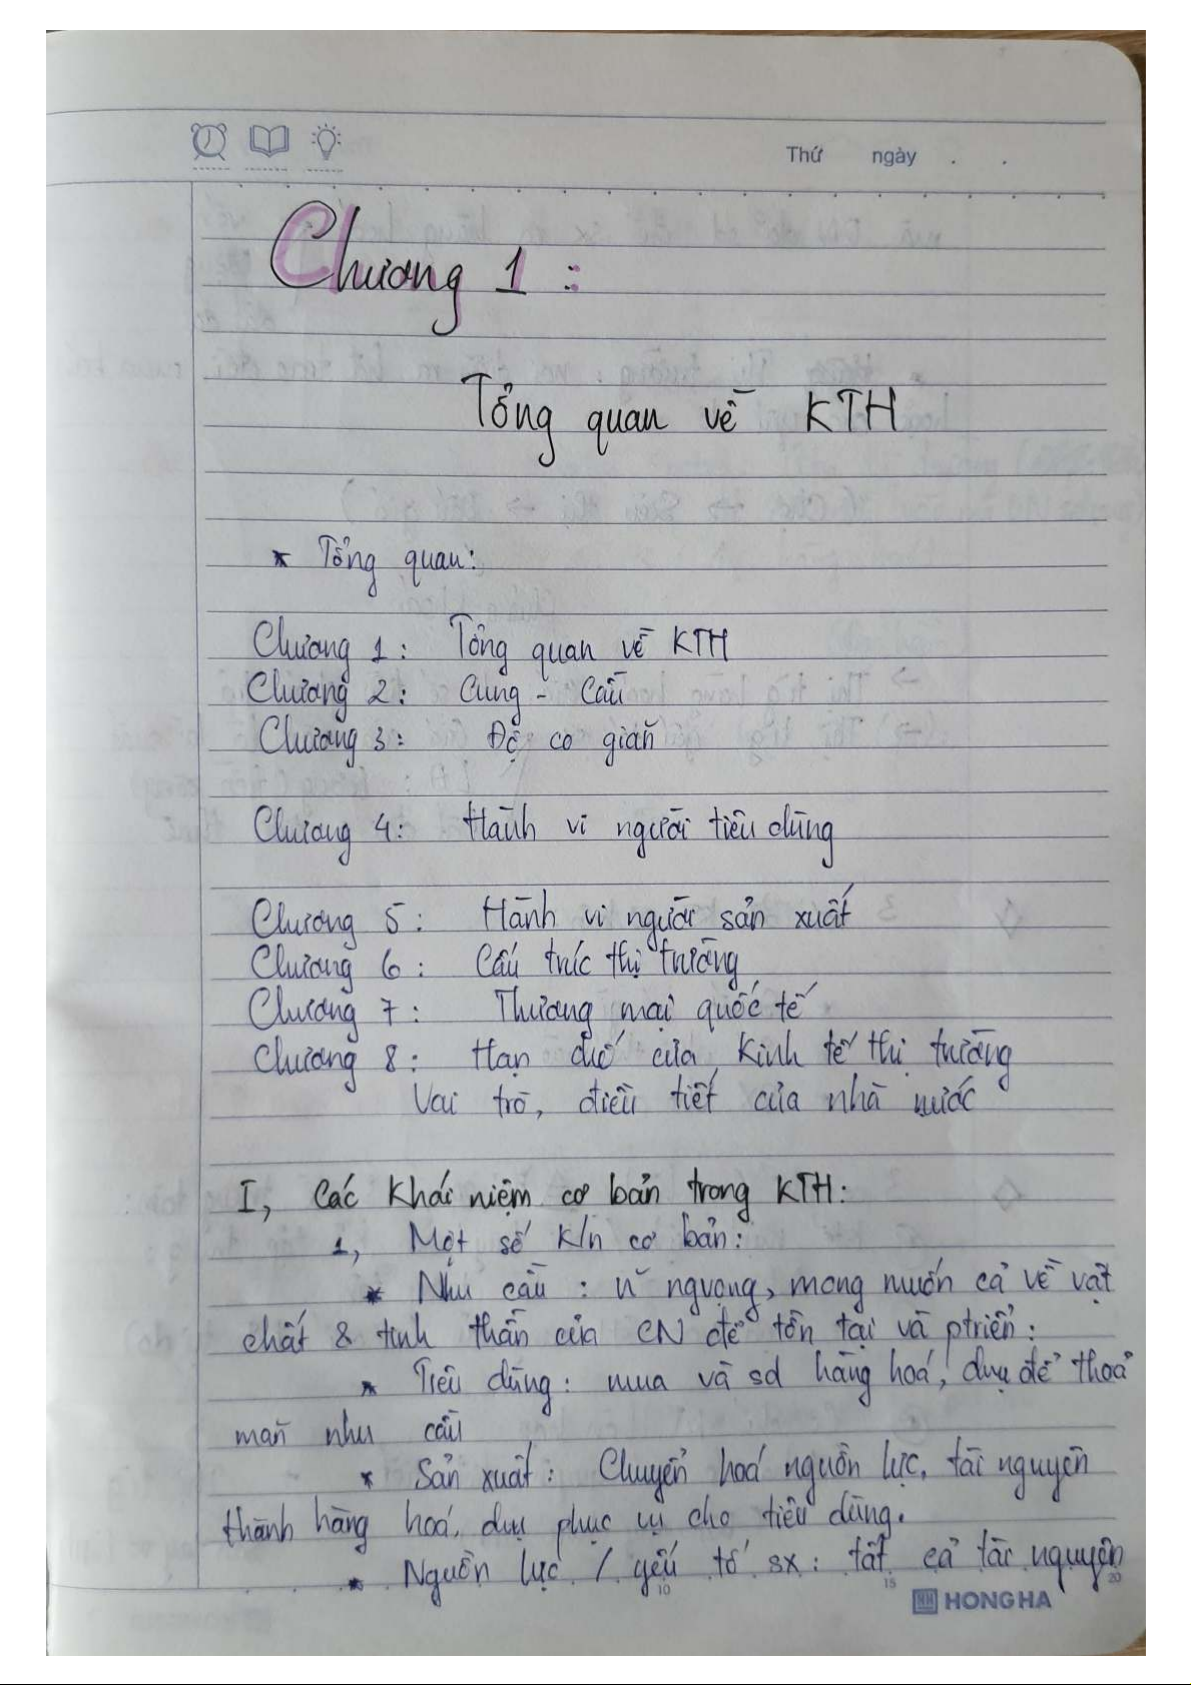 Thứ ngày . .
Chương 1 :
Tổng quan về KTH
* Tổng quan:
Chương 1 : Tổng quan về KTH
Chương 2 : Cung - Cầu
Chương 3 : Độ co giãn
Chương 4 : Hành vi người tiêu dùng
Chương 5 : Hành vi người sản xuất
Chương 6 : Cấu trúc thị trường
Chương 7 : Thương mại quốc tế
Chương 8 : Hạn chế của kinh tế thị trường
Vai trò, điều tiết của nhà nước
I, Các khái niệm cơ bản trong KTH:
1, Một số k/n cơ bản:
* Nhu cầu : ngvọng, mong muốn cả về vật
chất & tinh thần của CN để tồn tại và ptriển :
* Tiêu dùng : mua và sd hàng hoá, dvụ để thoả
mãn nhu cầu
* Sản xuất : Chuyển hoá nguồn lực, tài nguyên
thành hàng hoá, dvụ phục vụ cho tiêu dùng.
* Nguồn lực / yếu tố sx : tất cả tài nguyên
10 15 20
HH HONG HA